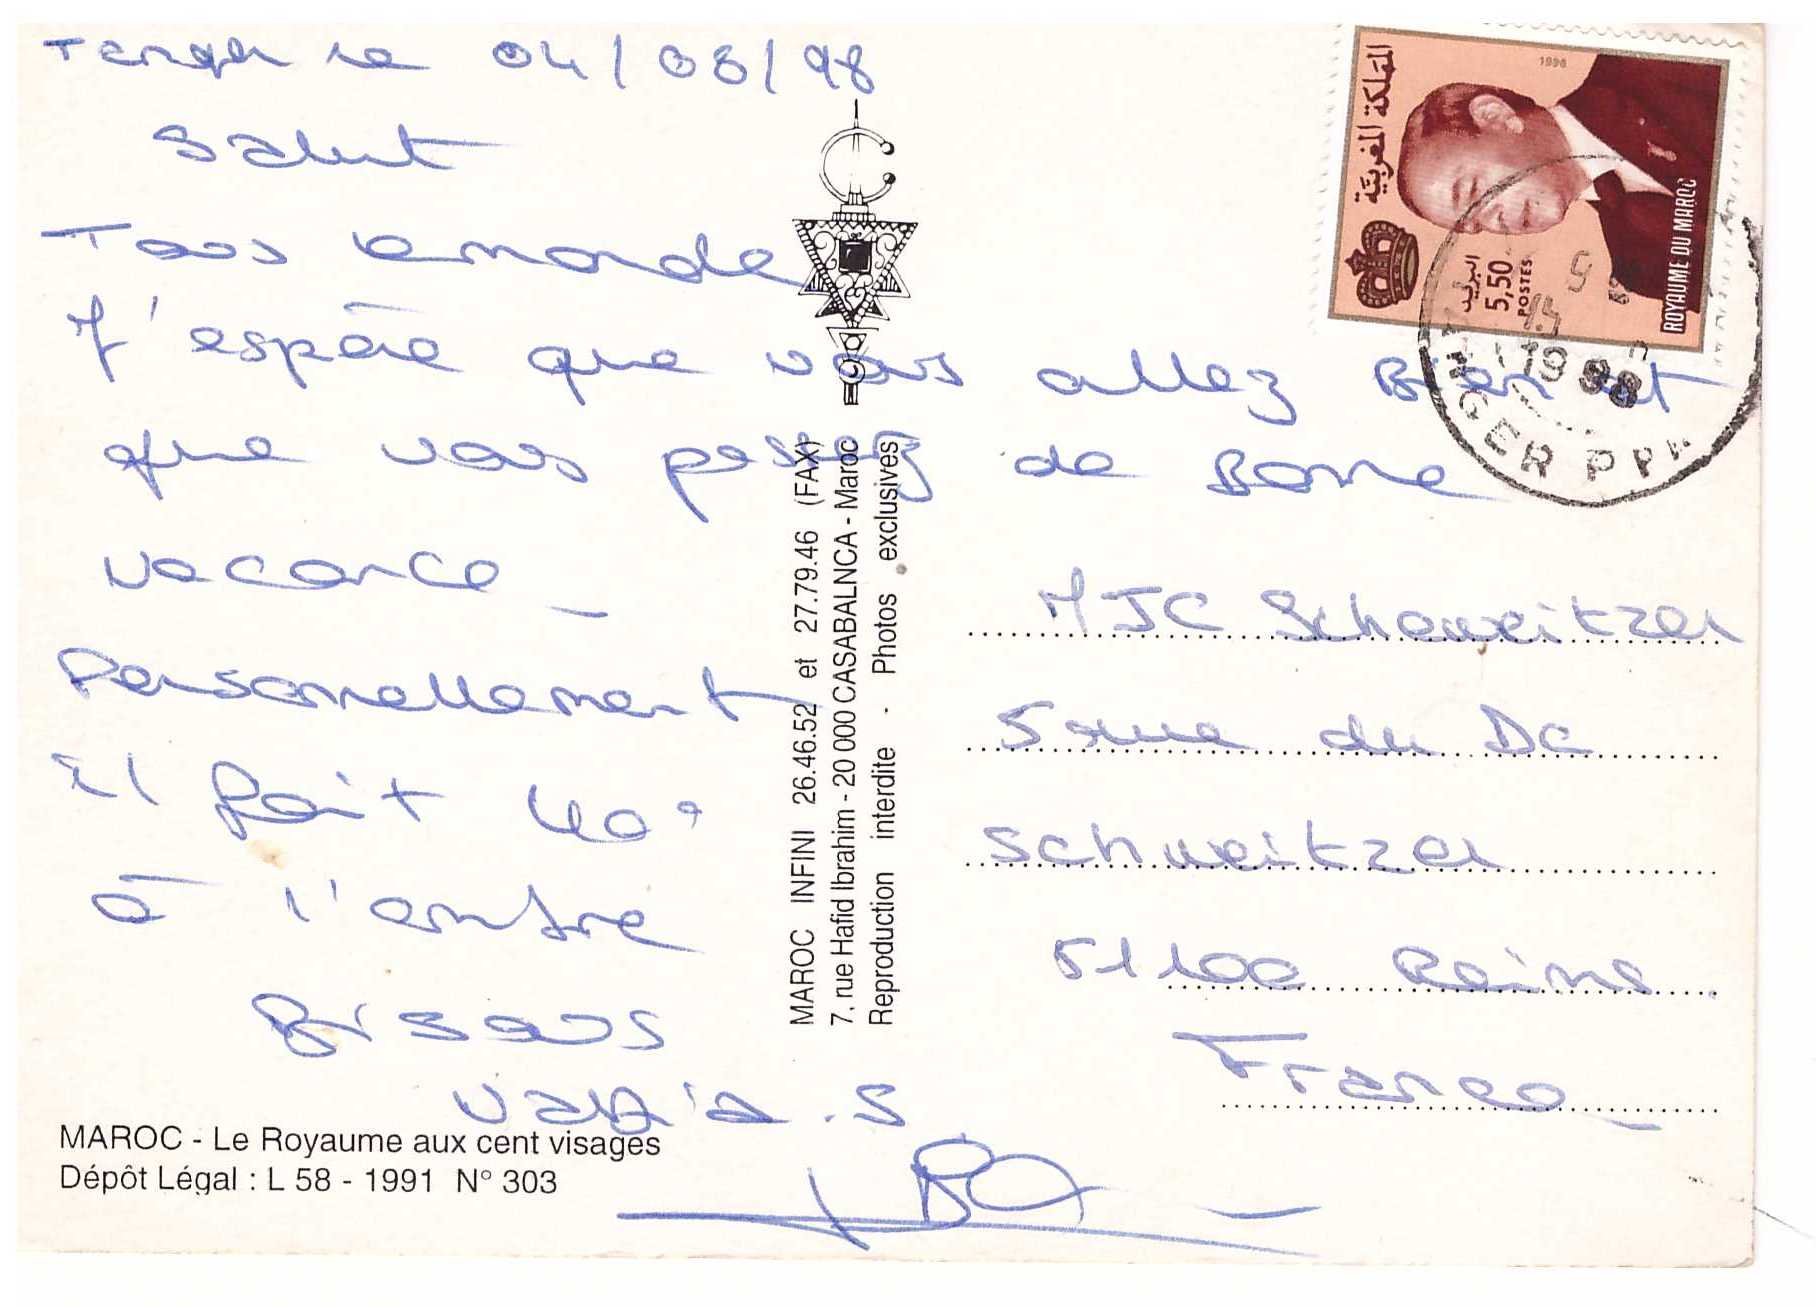 Tanger le 04/08/98
Salut
Tous le monde
J'espère que vous allez Bien et
que vous passez de Bonne
vacance
Personnellement
il fait 40°
à l'ombre
Bisous
.S
MAROC - Le Royaume aux cent visages
Dépôt Légal : L 58 - 1991 N° 303
MAROC INFINI 26.46.52 et 27.79.46 (FAX)
7, rue Hafid Ibrahim - 20 000 CASABALNCA - Maroc
Reproduction interdite - Photos exclusives
المملكة المغربية
1996
البريد
5,50
POSTES
ROYAUME DU MAROC
1998
TANGER PPAL
MJC Scheweitzer
5 rue du Dc
schweitzer
51100 Reims
France